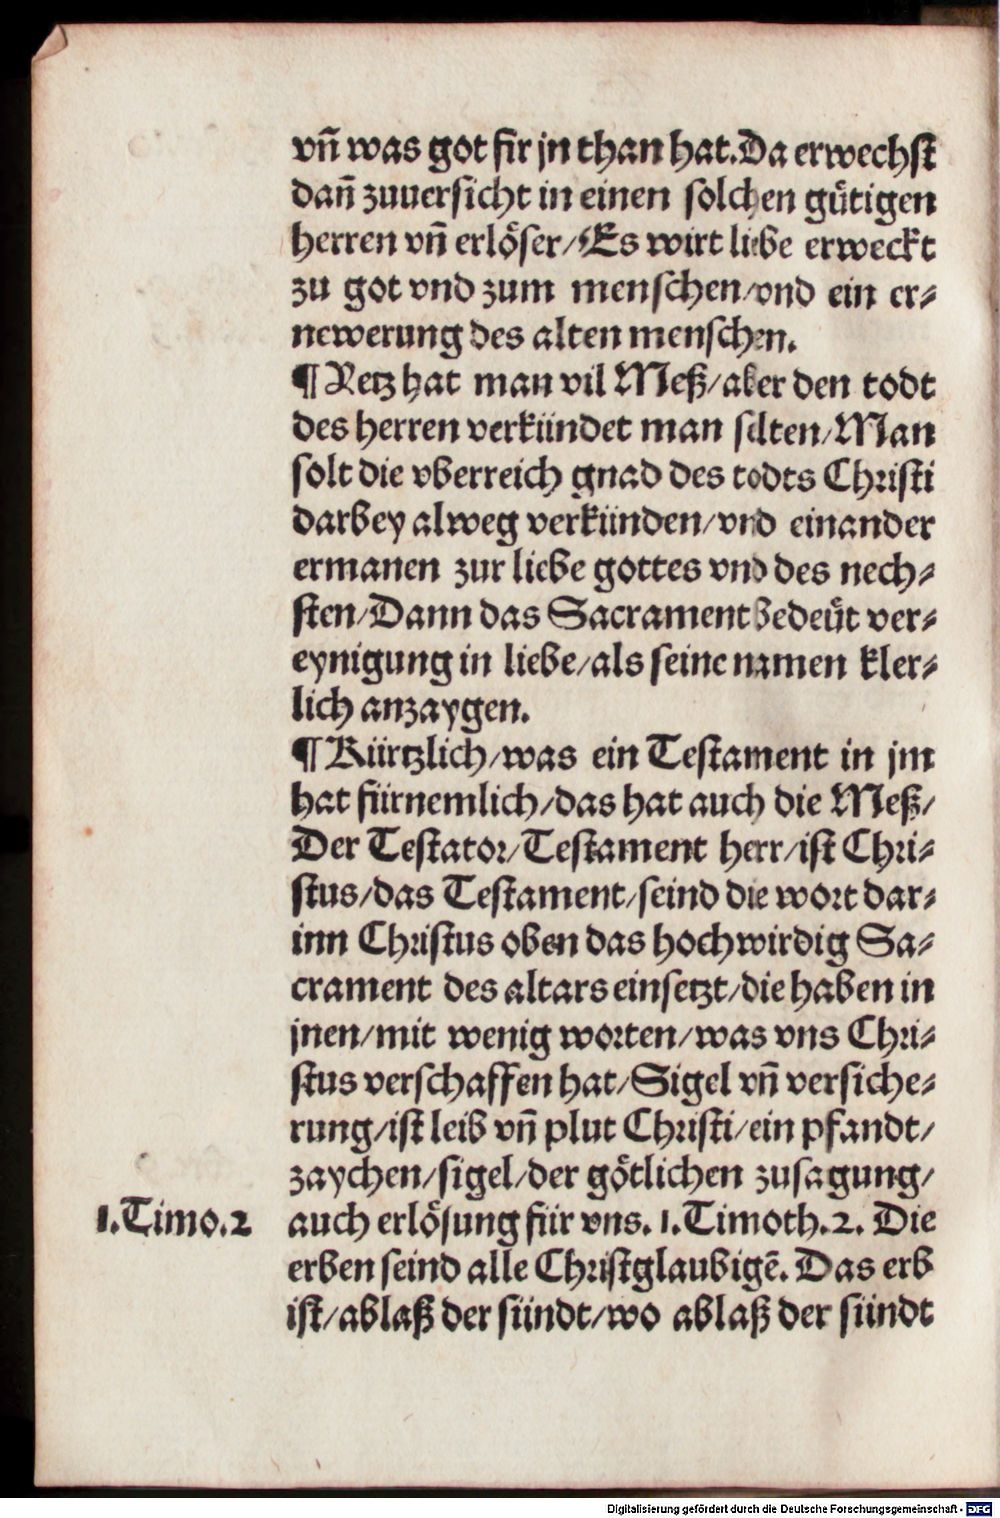 vn̄ was got fir jn than hat. Da erwechst
dan̄ zuuersicht in einen solchen gütigen
herren vn̄ erlöser/Es wirt liebe erweckt
zu got vnd zum menschen/vnd ein er⸗
newerung des alten menschen.
¶ Yetz hat man vil Meß/aber den todt
des herren verkündet man selten/Man
solt die vberreich gnad des todts Christi
darbey alweg verkünden/vnd einander
ermanen zur liebe gottes vnd des nech⸗
sten/Dann das Sacrament bedeüt ver⸗
eynigung in liebe/als seine namen kler⸗
lich anzaygen.
¶ Kürtzlich/was ein Testament in jm
hat fürnemlich/das hat auch die Meß/
Der Testator/Testament herr/ist Chri⸗
stus/das Testament/seind die wort dar⸗
inn Christus oben das hochwirdig Sa⸗
crament des altars einsetzt/die haben in
jnen/mit wenig worten/was vns Chri⸗
stus verschaffen hat/Sigel vn̄ versiche⸗
rung/ist leib vn̄ plut Christi/ein pfandt/
zaychen/sigel/der götlichen zusagung/
1.Timo.2 auch erlösung für vns. 1.Timoth.2. Die
erben seind alle Christglaubigē. Das erb
ist/ablaß der sündt/wo ablaß der sündt
Digitalisierung gefördert durch die Deutsche Forschungsgemeinschaft - DFG